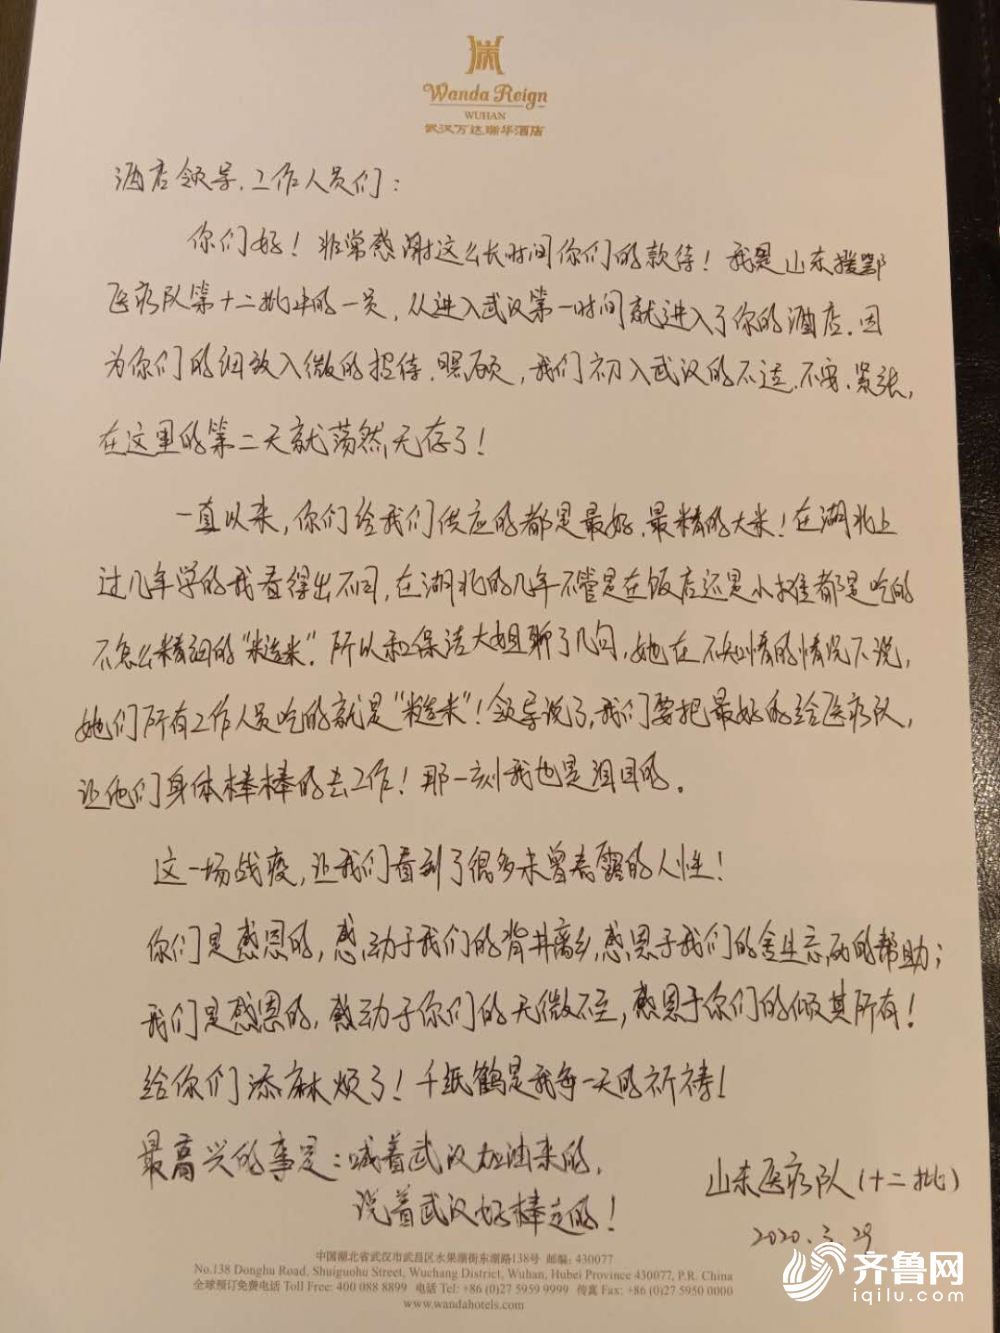 Wanda Reign
WUHAN
武汉万达瑞华酒店
酒店领导、工作人员们：
你们好！非常感谢这么长时间你们的款待！我是山东援鄂
医疗队第十二批中的一员，从进入武汉第一时间就进入了你的酒店.因
为你们的细致入微的招待、照顾，我们初入武汉的不适、不安、紧张，
在这里的第二天就荡然无存了！
一直以来，你们给我们供应的都是最好、最精的大米！在湖北上
过几年学的我看得出不同，在湖北的几年不管是在饭店还是小摊都是吃的
不怎么精细的“糙米”.所以和保洁大姐聊了几句，她在不知情的情况下说，
她们所有工作人员吃的就是“糙米”！领导说了，我们要把最好的给医疗队，
让他们身体棒棒的去工作！那一刻我也是泪目的。
这一场战疫，让我们看到了很多未曾表露的人性！
你们是感恩的，感动于我们的背井离乡，感恩于我们的舍生忘死的帮助；
我们是感恩的，感动于你们的无微不至，感恩于你们的倾其所有！
给你们添麻烦了！千纸鹤是我每一天的祈祷！
最高兴的事是：喊着武汉加油来的，
说着武汉好棒走的！
山东医疗队（十二批）
2020.3.29
中国湖北省武汉市武昌区水果湖街东湖路138号 邮编: 430077
No.138 Donghu Road, Shuiguohu Street, Wuchang District, Wuhan, Hubei Province 430077, P.R. China
全球预订免费电话 Toll Free: 400 088 8899 电话 Tel: +86 (0)27 5959 9999 传真 Fax: +86 (0)27 5950 0000
www.wandahotels.com
齐鲁网
iqilu.com